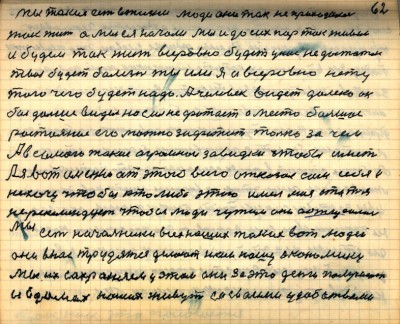 62
мы такие сет в жизни люди они так не приходили
так жит а мы с я начали мы и до сих пар так живём
и будем так жит всеровно будет у нас не достаток
твоя будет болит ты или Я а всеровно нету
того чего будет надо. А человек видет далеко он
больше видел но сам не хватает а место большое
растояние его можно захватит только за чем
А в самого такие огромной завидки чтобы имет
А я вот именно от этого всего отказал сам себя я
нехочу чтобы кто либо этого имел моя статья
нерекомендует чтобы люди чужим они
Мы сет начальники всех наших таких вот людей
они в нас трудятся делают нам нашу экономику
мы их сохраняем у этом они за это денги получают
и в домах наших живут со своими удобствами